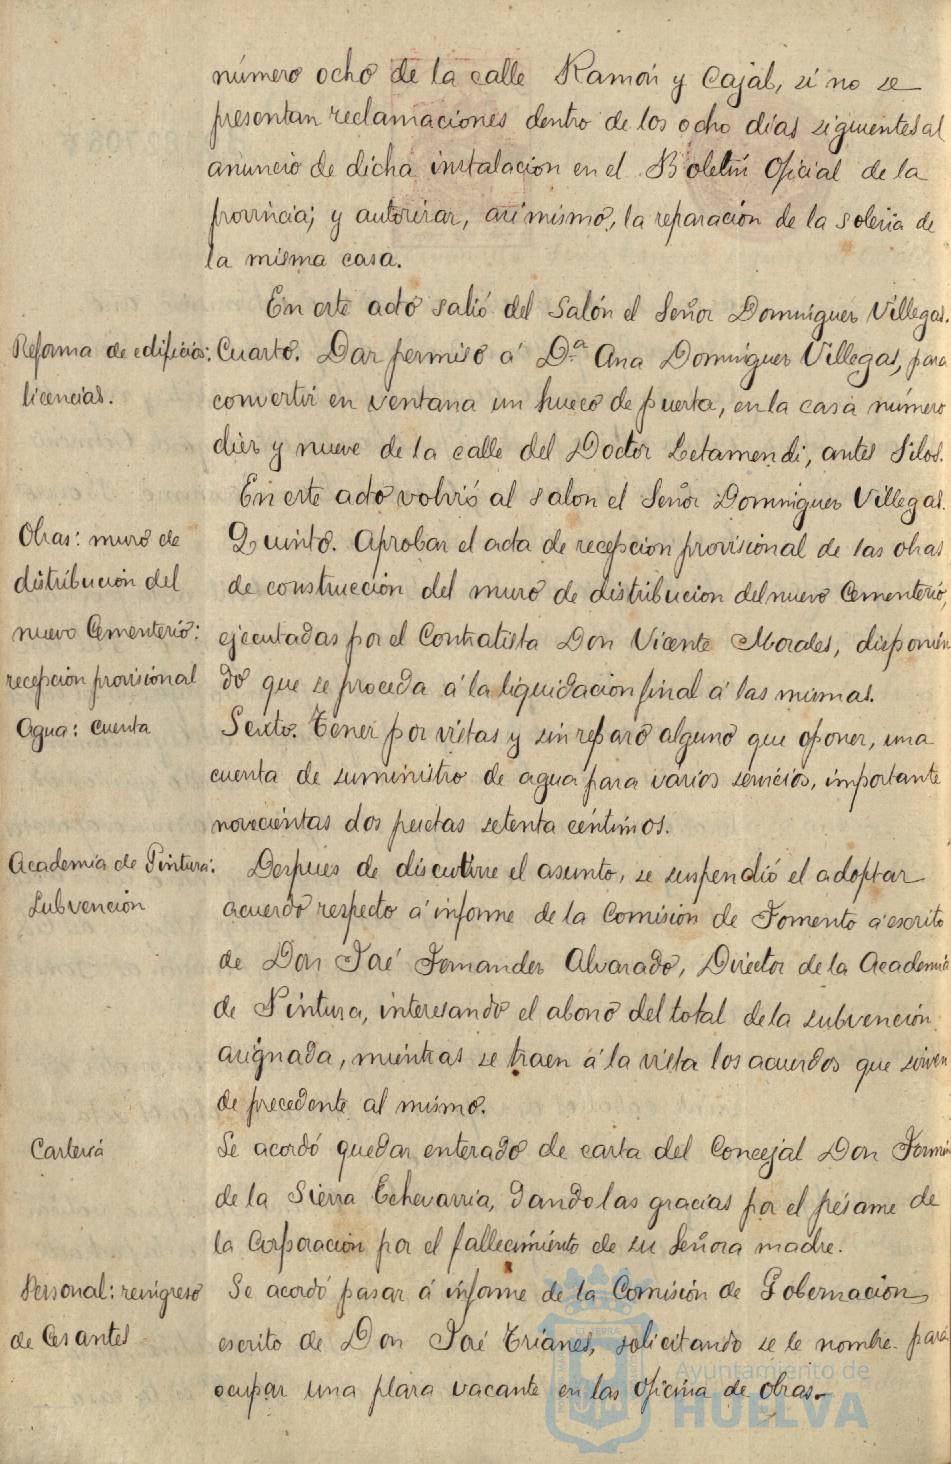 número ocho de la calle Ramón y Cajal, si no se
presentan reclamaciones dentro de los ocho días siguientes al
anuncio de dicha instalación en el Boletín Oficial de la
provincia; y autorizar, asimismo, la reparación de la solería de
la misma casa.
En este acto salió del Salón el Señor Domínguez Villegas.
Reforma de edificios: licencias.
Cuarto. Dar permiso á D.ª Ana Domínguez Villegas, para
convertir en ventana un hueco de puerta, en la casa número
diez y nueve de la calle del Doctor Letamendi, antes Silos.
En este acto volvió al salon el Señor Domínguez Villegas.
Obras: muro de
distribución del
nuevo Cementerio:
recepción provisional
Quinto. Aprobar el acta de recepción provisional de las obras
de construcción del muro de distribucion del nuevo Cementerio,
ejecutadas por el Contratista Don Vicente Morales, disponien
do que se proceda á la liquidacion final á las mismas.
Agua: cuenta
Sexto. Tener por vistas y sin reparo alguno que oponer, una
cuenta de suministro de agua para varios servicios, importante
novecientas dos pesetas setenta céntimos.
Academia de Pintura:
Subvención
Despues de discutirse el asunto, se suspendió el adoptar
acuerdo respecto á informe de la Comisión de Fomento á escrito
de Don José Fernandez Alvarado, Director de la Academia
de Pintura, interesando el abono del total de la subvención
asignada, mientras se traen á la vista los acuerdos que sirven
de precedente al mismo.
Cartería
Se acordó quedar enterado de carta del Concejal Don Fermín
de la Sierra Echevarria, dando las gracias por el pésame de
la Corporación por el fallecimiento de su Señora madre.
Personal: reingreso
de Cesantes
Se acordó pasar á informe de la Comisión de Gobernacion
escrito de Don José Trianes, solicitando se le nombre para
ocupar una plaza vacante en las oficina de Obras.
Ayuntamiento de
HUELVA